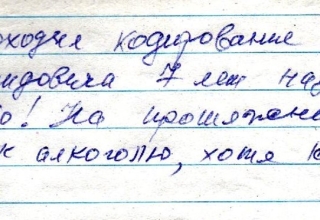 оходил кодирование
идовича 7 лет наз
о! На протяжен
к алкоголю, хотя к